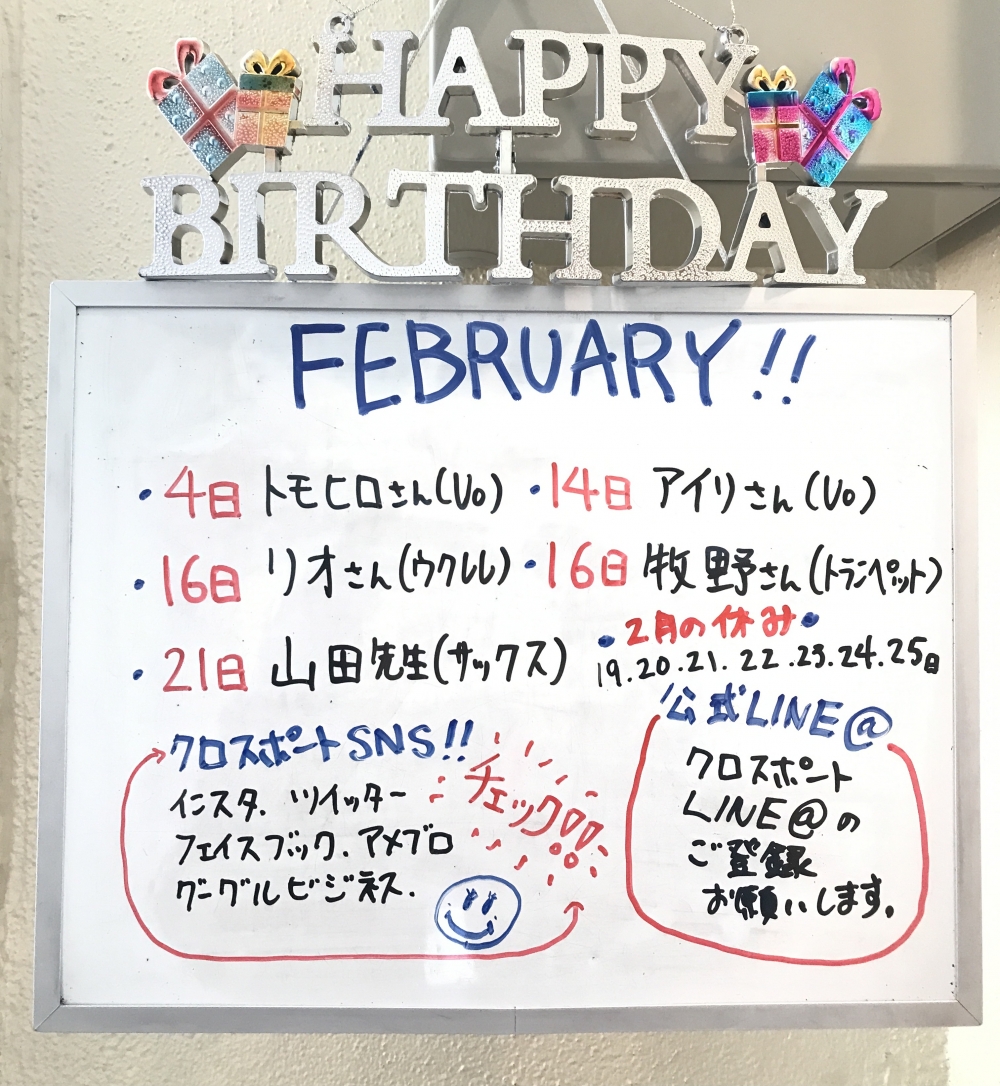 HAPPY
BIRTHDAY
FEBRUARY!!
・4日 トモヒロさん(Vo) ・14日 アイリさん(Vo)
・16日 リオさん(ウクレレ) ・16日 牧野さん(トランペット)
・21日 山田先生(サックス)
・2月の休み・
19.20.21.22.23.24.25日
クロスポートSNS!!
インスタ. ツイッター
フェイスブック. アメブロ
グーグルビジネス.
チェック!!
公式LINE@
クロスポート
LINE@の
ご登録
お願いします。